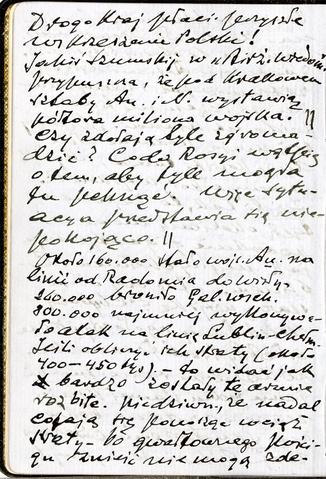 Drogo Kraj płaci przyszłe
wskrzeszenie Polski!
Jakiś Szumskij w „Birż. Wiedom."
przypuszcza, że pod Krakowem
sztaby Au. i N. wystawią
półtora miliona wojska. ||
Czy zdołają tyle zgroma-
dzić? Co do Rosyi wątpię
o tem, aby tyle mogła
tu pchnąć. Więc sytu-
acya przedstawia się nie-
pokojąco. ||
Około 160.000 stało wojsk. Au. na
linii od Radomia do Wisły.
260.000 broniło Gal. wsch.
800.000 najmniej wykonywa-
ło atak na linię Lublin-Chełm.
Jeśli obliczy. ich straty (około
400–450 tys.) – to widać jak
bardzo zostały te armie
rozbite. Niedziwno, że nadal
cofają się ponosząc wciąż
straty. – Bo gwałtownego pości-
gu znieść nie mogą zde-